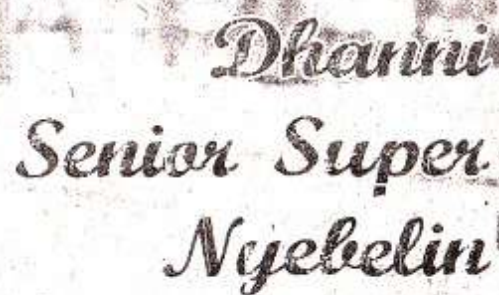 Dhanni
Senior Super
Nyebelin